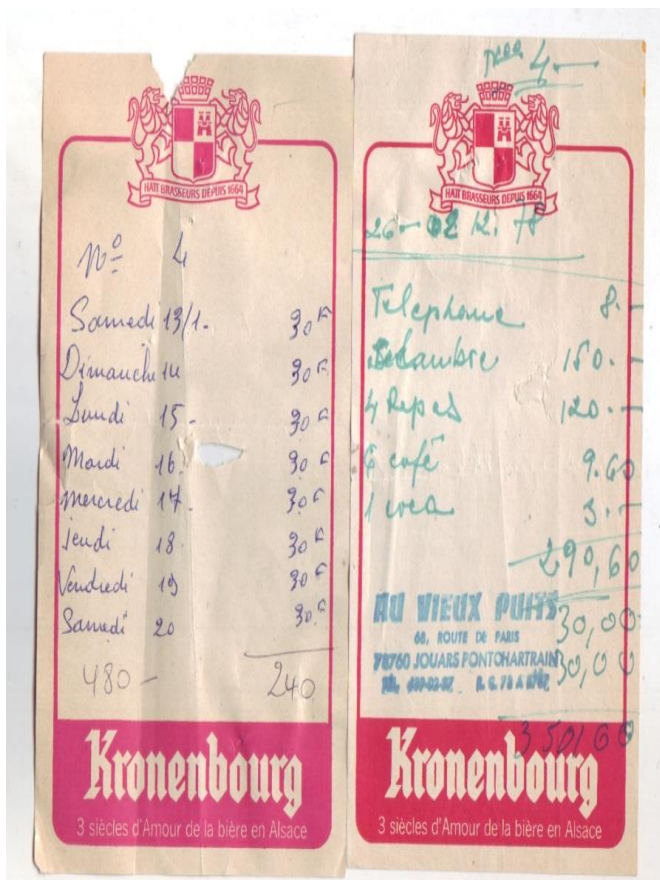 HATT BRASSEURS DEPUIS 1664
Nº 4
Samedi 13/1. 30F
Dimanche 14 30F
Lundi 15. 30F
Mardi 16. 30F
Mercredi 17. 30F
Jeudi 18 30F
Vendredi 19 30F
Samedi 20 30F
480 - 240
Kronenbourg
3 siècles d'Amour de la bière en Alsace
4 -
HATT BRASSEURS DEPUIS 1664
26 - 12. 78
Telephone 8. -
150. -
4 Repas 120. -
6 café 9.60
1 coca 3. -
290,60
AU VIEUX PUITS
30,00
68, ROUTE DE PARIS
78760 JOUARS PONTCHARTRAIN
30,00
350,60
Kronenbourg
3 siècles d'Amour de la bière en Alsace